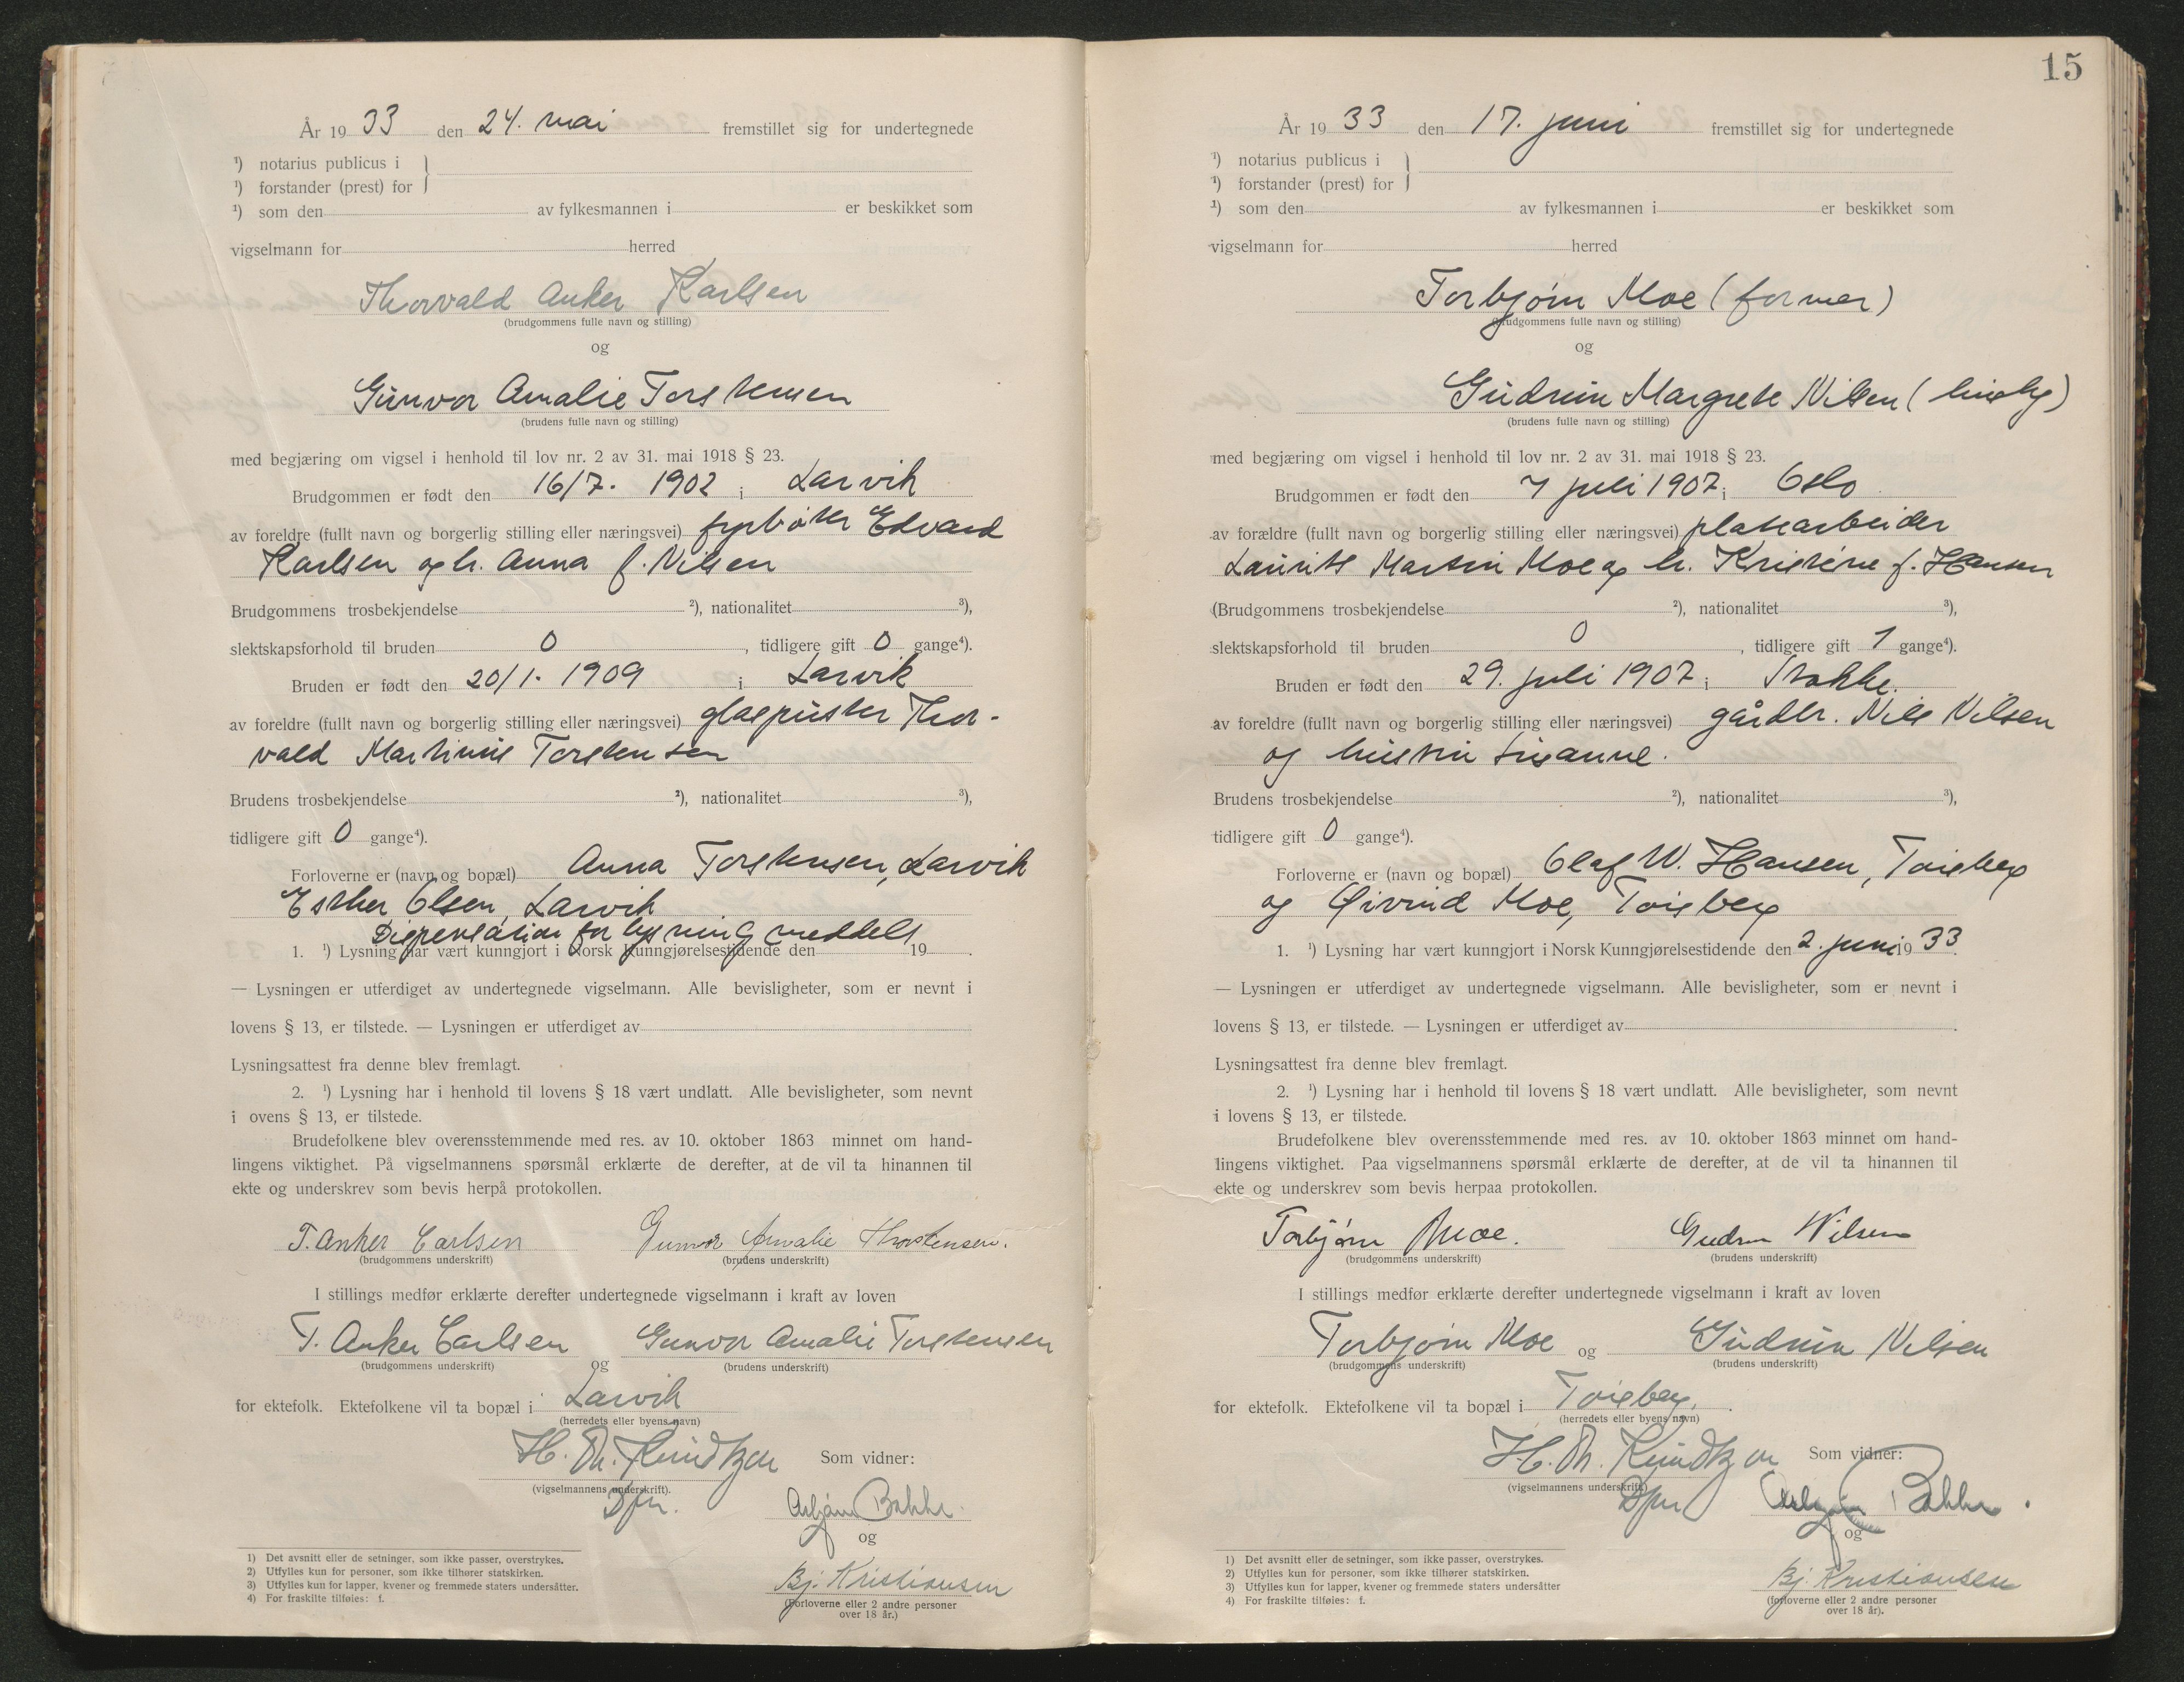 År 19 33 den 24. mai fremstillet sig for undertegnede
¹) notarius publicus i
¹) forstander (prest) for
¹) som den av fylkesmannen i er beskikket som
vigselmann for herred
Thorvald Anker Karlsen
(brudgommens fulle navn og stilling)
og
Gunvor Amalie Torstensen
(brudens fulle navn og stilling)
med begjæring om vigsel i henhold til lov nr. 2 av 31. mai 1918 § 23.
Brudgommen er født den 16/7. 1902 i Larvik
av foreldre (fullt navn og borgerlig stilling eller næringsvei) fyrbøter Edvard
Karlsen og h. Anna f. Nilsen
Brudgommens trosbekjendelse ²), nationalitet ³),
slektskapsforhold til bruden 0, tidligere gift 0 gange⁴).
Bruden er født den 20/1. 1909 i Larvik
av foreldre (fullt navn og borgerlig stilling eller næringsvei) glaspuster Thor-
vald Martinus Torstensen
Brudens trosbekjendelse ²), nationalitet ³),
tidligere gift 0 gange⁴).
Forloverne er (navn og bopæl) Anna Torstensen, Larvik
Esther Olsen, Larvik
Dispensasion for lysning meddelt
1. ¹) Lysning har vært kunngjort i Norsk Kunngjørelsestidende den 19 .
— Lysningen er utferdiget av undertegnede vigselmann. Alle bevisligheter, som er nevnt i
lovens § 13, er tilstede. — Lysningen er utferdiget av
Lysningsattest fra denne blev fremlagt.
2. ¹) Lysning har i henhold til lovens § 18 vært undlatt. Alle bevisligheter, som nevnt
i ovens § 13, er tilstede.
Brudefolkene blev overensstemmende med res. av 10. oktober 1863 minnet om hand-
lingens viktighet. På vigselmannens spørsmål erklærte de derefter, at de vil ta hinannen til
ekte og underskrev som bevis herpå protokollen.
T. Anker Carlsen Gunvor Amalie Thorstensen.
(brudgommens underskrift) (brudens underskrift)
I stillings medfør erklærte derefter undertegnede vigselmann i kraft av loven
T. Anker Carlsen og Gunvor Amalie Torstensen
(brudgommens underskrift) (brudens underskrift)
for ektefolk. Ektefolkene vil ta bopæl i Larvik
(herredets eller byens navn)
H. Th. Knudtzon Som vidner:
(vigselmannens underskrift).
Dfm.
Asbjørn Bakke.
og
Bj. Kristiansen
(Forloverne eller 2 andre personer
over 18 år.)
1) Det avsnitt eller de setninger, som ikke passer, overstrykes.
2) Utfylles kun for personer, som ikke tilhører statskirken.
3) Utfylles kun for lapper, kvener og fremmede staters undersåtter.
4) For fraskilte tilføies: f.
15
År 19 33 den 17. juni fremstillet sig for undertegnede
¹) notarius publicus i
¹) forstander (prest) for
¹) som den av fylkesmannen i er beskikket som
vigselmann for herred
Torbjørn Moe (former)
(brudgommens fulle navn og stilling)
og
Gudrun Margrete Nilsen (husby)
(brudens fulle navn og stilling)
med begjæring om vigsel i henhold til lov nr. 2 av 31. mai 1918 § 23.
Brudgommen er født den 7 juli 1907 i Oslo
av forældre (fullt navn og borgerlig stilling eller næringsvei) platearbeider
Laurits Martin Moe og h. Kristine f. Hansen
(Brudgommens trosbekjendelse ²), nationalitet ³),
slektskapsforhold til bruden 0, tidligere gift 1 gange⁴).
Bruden er født den 29. juli 1907 i Stokke.
av foreldre (fullt navn og borgerlig stilling eller næringsvei) gårdbr. Nils Nilsen
og hustru Susanne.
Brudens trosbekjendelse ²), nationalitet ³),
tidligere gift 0 gange⁴).
Forloverne er (navn og bopæl) Olaf W. Hansen, Tønsberg
og Øivind Moe, Tønsberg
1. ¹) Lysning har vært kunngjort i Norsk Kunngjørelsestidende den 2. juni 19 33.
— Lysningen er utferdiget av undertegnede vigselmann. Alle bevisligheter, som er nevnt i
lovens § 13, er tilstede. — Lysningen er utferdiget av .
Lysningsattest fra denne blev fremlagt.
2. ¹) Lysning har i henhold til lovens § 18 vært undlatt. Alle bevisligheter, som nevnt
i lovens § 13, er tilstede.
Brudefolkene blev overensstemmende med res. av 10. oktober 1863 minnet om hand-
lingens viktighet. Paa vigselmannens spørsmål erklærte de derefter, at de vil ta hinannen til
ekte og underskrev som bevis herpaa protokollen.
Torbjørn Moe. Gudrun Nilsen
(brudgommens underskrift) (brudens underskrift)
I stillings medfør erklærte derefter undertegnede vigselmann i kraft av loven
Torbjørn Moe og Gudrun Nilsen
(brudgommens underskrift) (brudens underskrift)
for ektefolk. Ektefolkene vil ta bopæl i Tønsberg.
(herredets eller byens navn)
H. Th. Knudtzon Som vidner:
(vigselmannens underskrift)
Dfm
Asbjørn Bakke.
og
Bj. Kristiansen
(forloverne eller 2 andre personer
over 18 år).
1) Det avsnitt eller de setninger, som ikke passer, overstrykes.
2) Utfylles kun for personer, som ikke tilhører statskirken.
3) Utfylles kun for lapper, kvener og fremmede staters undersåtter
4) For fraskilte tilføies: f.